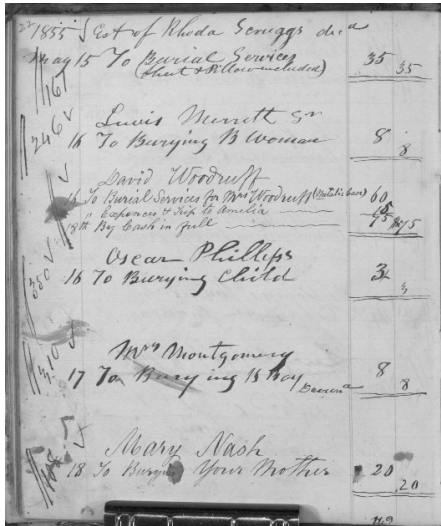 1855 Est of Rhoda Scruggs dec'd
May 15 To Burial Services 35 35
(Sheet & Pillow included)
161
Lewis Merrett Sr
246 16 To Burying B Woman 8 8
David Woodruff
16 To Burial Services for Mrs Woodruff (Metalic Case) 60
" Expences & Trip to Amelia 15
18th By Cash in full 75 75
Oscar Phillips
350 16 To Burying Child 3 3
Mrs Montgomery
310 17 To Burying B Boy 8 8
Mary Nash
18 To Burying Your Mother 20 20